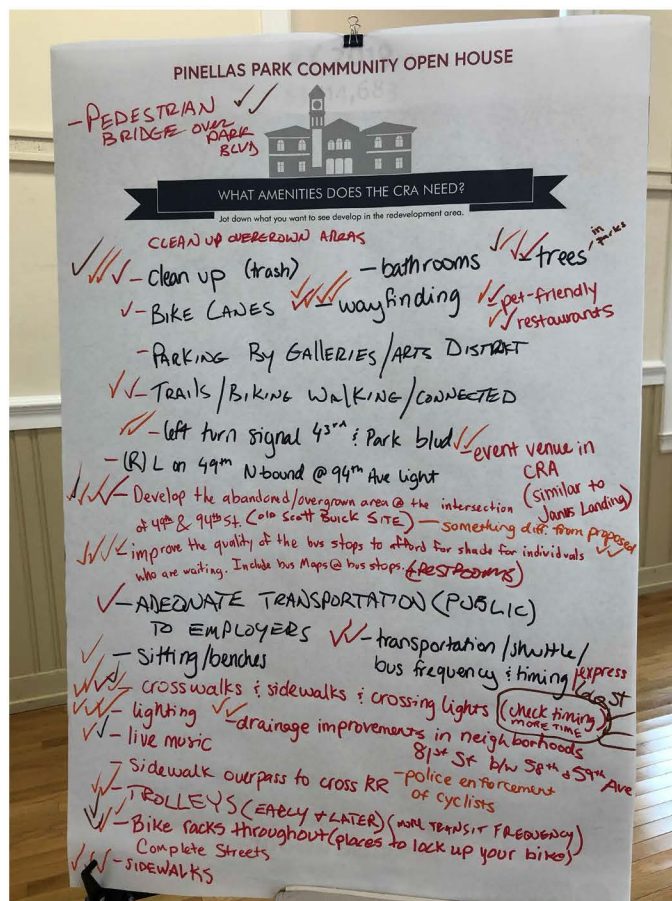 PINELLAS PARK COMMUNITY OPEN HOUSE
- PEDESTRIAN
BRIDGE OVER
PARK
BLVD
WHAT AMENITIES DOES THE CRA NEED?
Jot down what you want to see develop in the redevelopment area.
CLEAN UP OVERGROWN AREAS
- Clean up (trash)
- bathrooms
- trees in parks
- BIKE LANES
- wayfinding
- pet-friendly
restaurants
- PARKING BY GALLERIES/ARTS DISTRICT
- TRAILS/BIKING WALKING/CONNECTED
- left turn signal 43rd & Park blvd
- event venue in
CRA
(similar to
Janus Landing)
- (R) L on 49th N bound @ 94th Ave light
- Develop the abandoned/overgrown area @ the intersection
of 49th & 94th St. (old Scott Buick SITE) — something diff. from proposed
- improve the quality of the bus stops to afford for shade for individuals
who are waiting. Include bus Maps @ bus stops. (+RESTROOMS)
- ADEQUATE TRANSPORTATION (PUBLIC)
TO EMPLOYERS
- transportation/shuttle/
bus frequency & timing/express
- Sitting/benches
- crosswalks & sidewalks & crossing lights (check timing
MORE TIME)
- lighting
- drainage improvements in neighborhoods
81st St b/w 58th & 59th Ave
- live music
- Sidewalk overpass to cross RR
- police enforcement
of cyclists
- TROLLEYS (EARLY & LATER) (MORE TRANSIT FREQUENCY)
- Bike racks throughout (places to lock up your bike)
Complete Streets
- SIDEWALKS